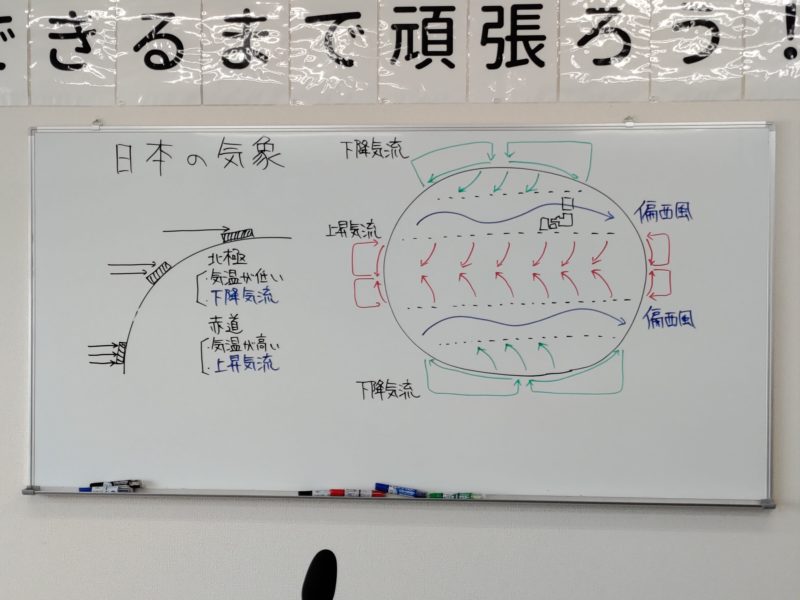 できるまで頑張ろう!
日本の気象
下降気流
偏西風
上昇気流
北極
・気温が低い
・下降気流
赤道
・気温が高い
・上昇気流
偏西風
下降気流